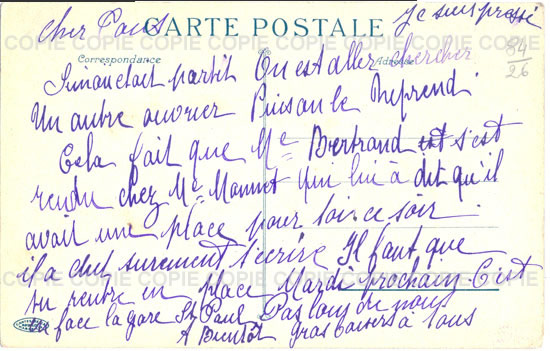 CARTE POSTALE
Je suis pressé
cher Paus
Correspondance
Adresse
84/26
Simon était partit On est aller chercher
Un autre ouvrier Puis on le Reprend
Cela fait que Me Bertrand est s'est
rendu chez Me Monnet qui lui à dit qu'il
avait une place pour lui ce soir
il a dut surement t'écrire Il faut que
tu rentre en place Mardi prochain C'est
en face la gare St Paul Pas loin de nous
A Bientôt gros baisers à tous
COPIE COPIE COPIE COPIE COPIE COPIE COPIE